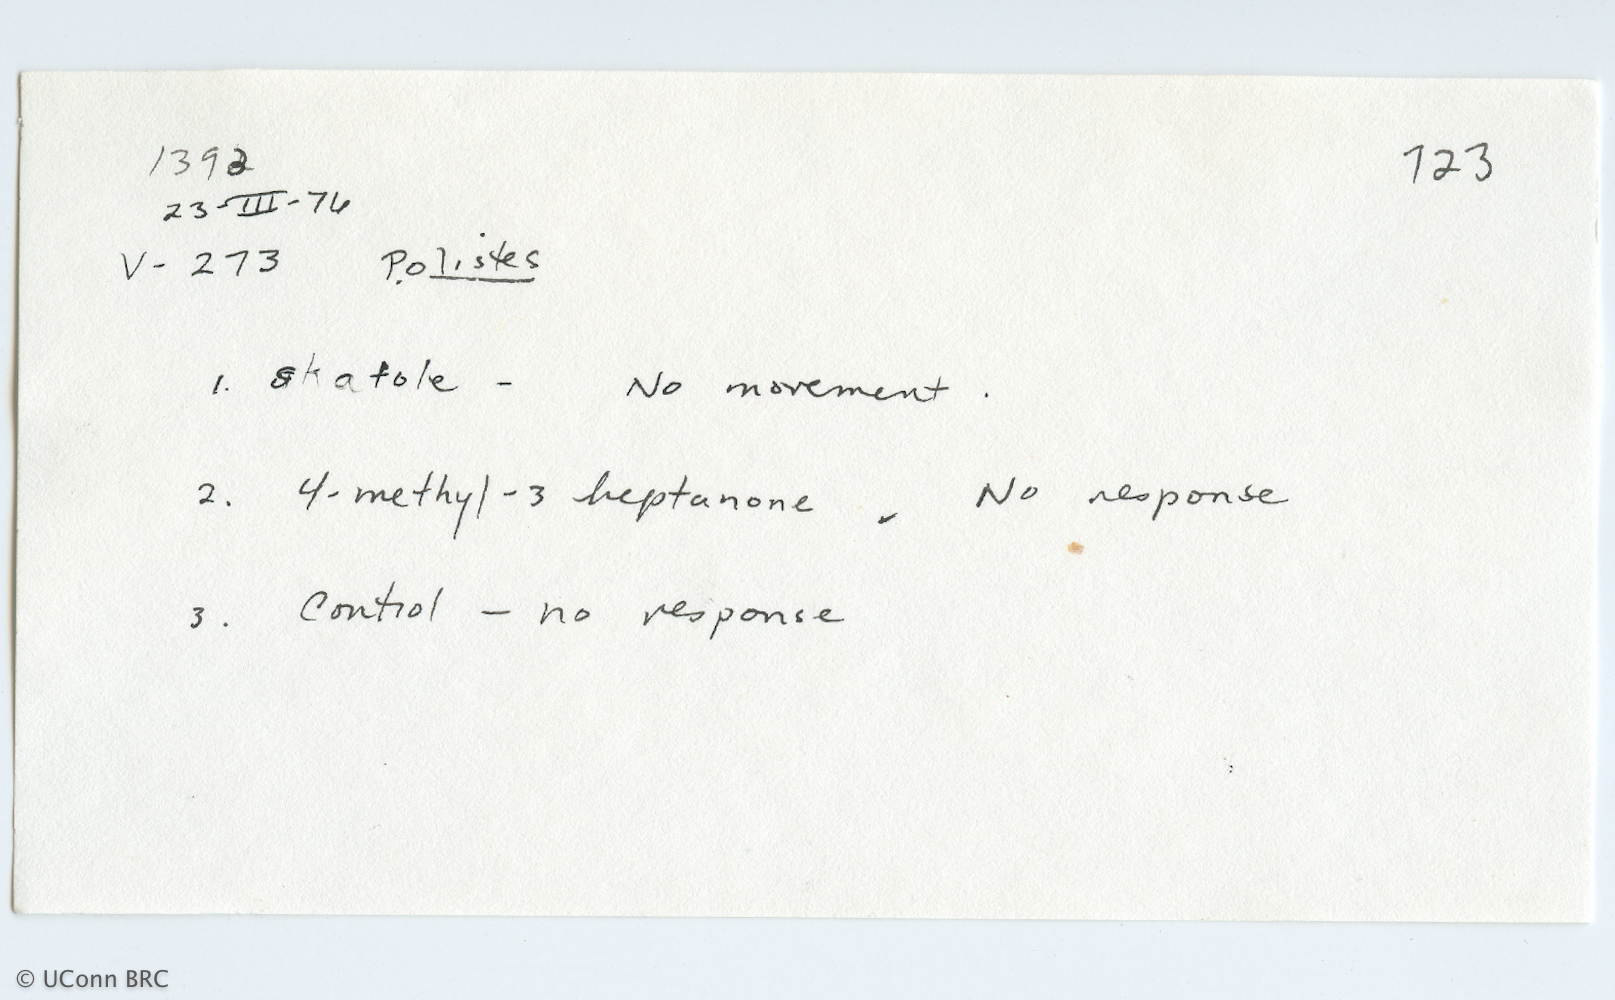 1392 123
23-III-76
V-273 Polistes
1. skatole - No movement.
2. 4-methyl-3 heptanone - No response
3. Control - no response
© UConn BRC